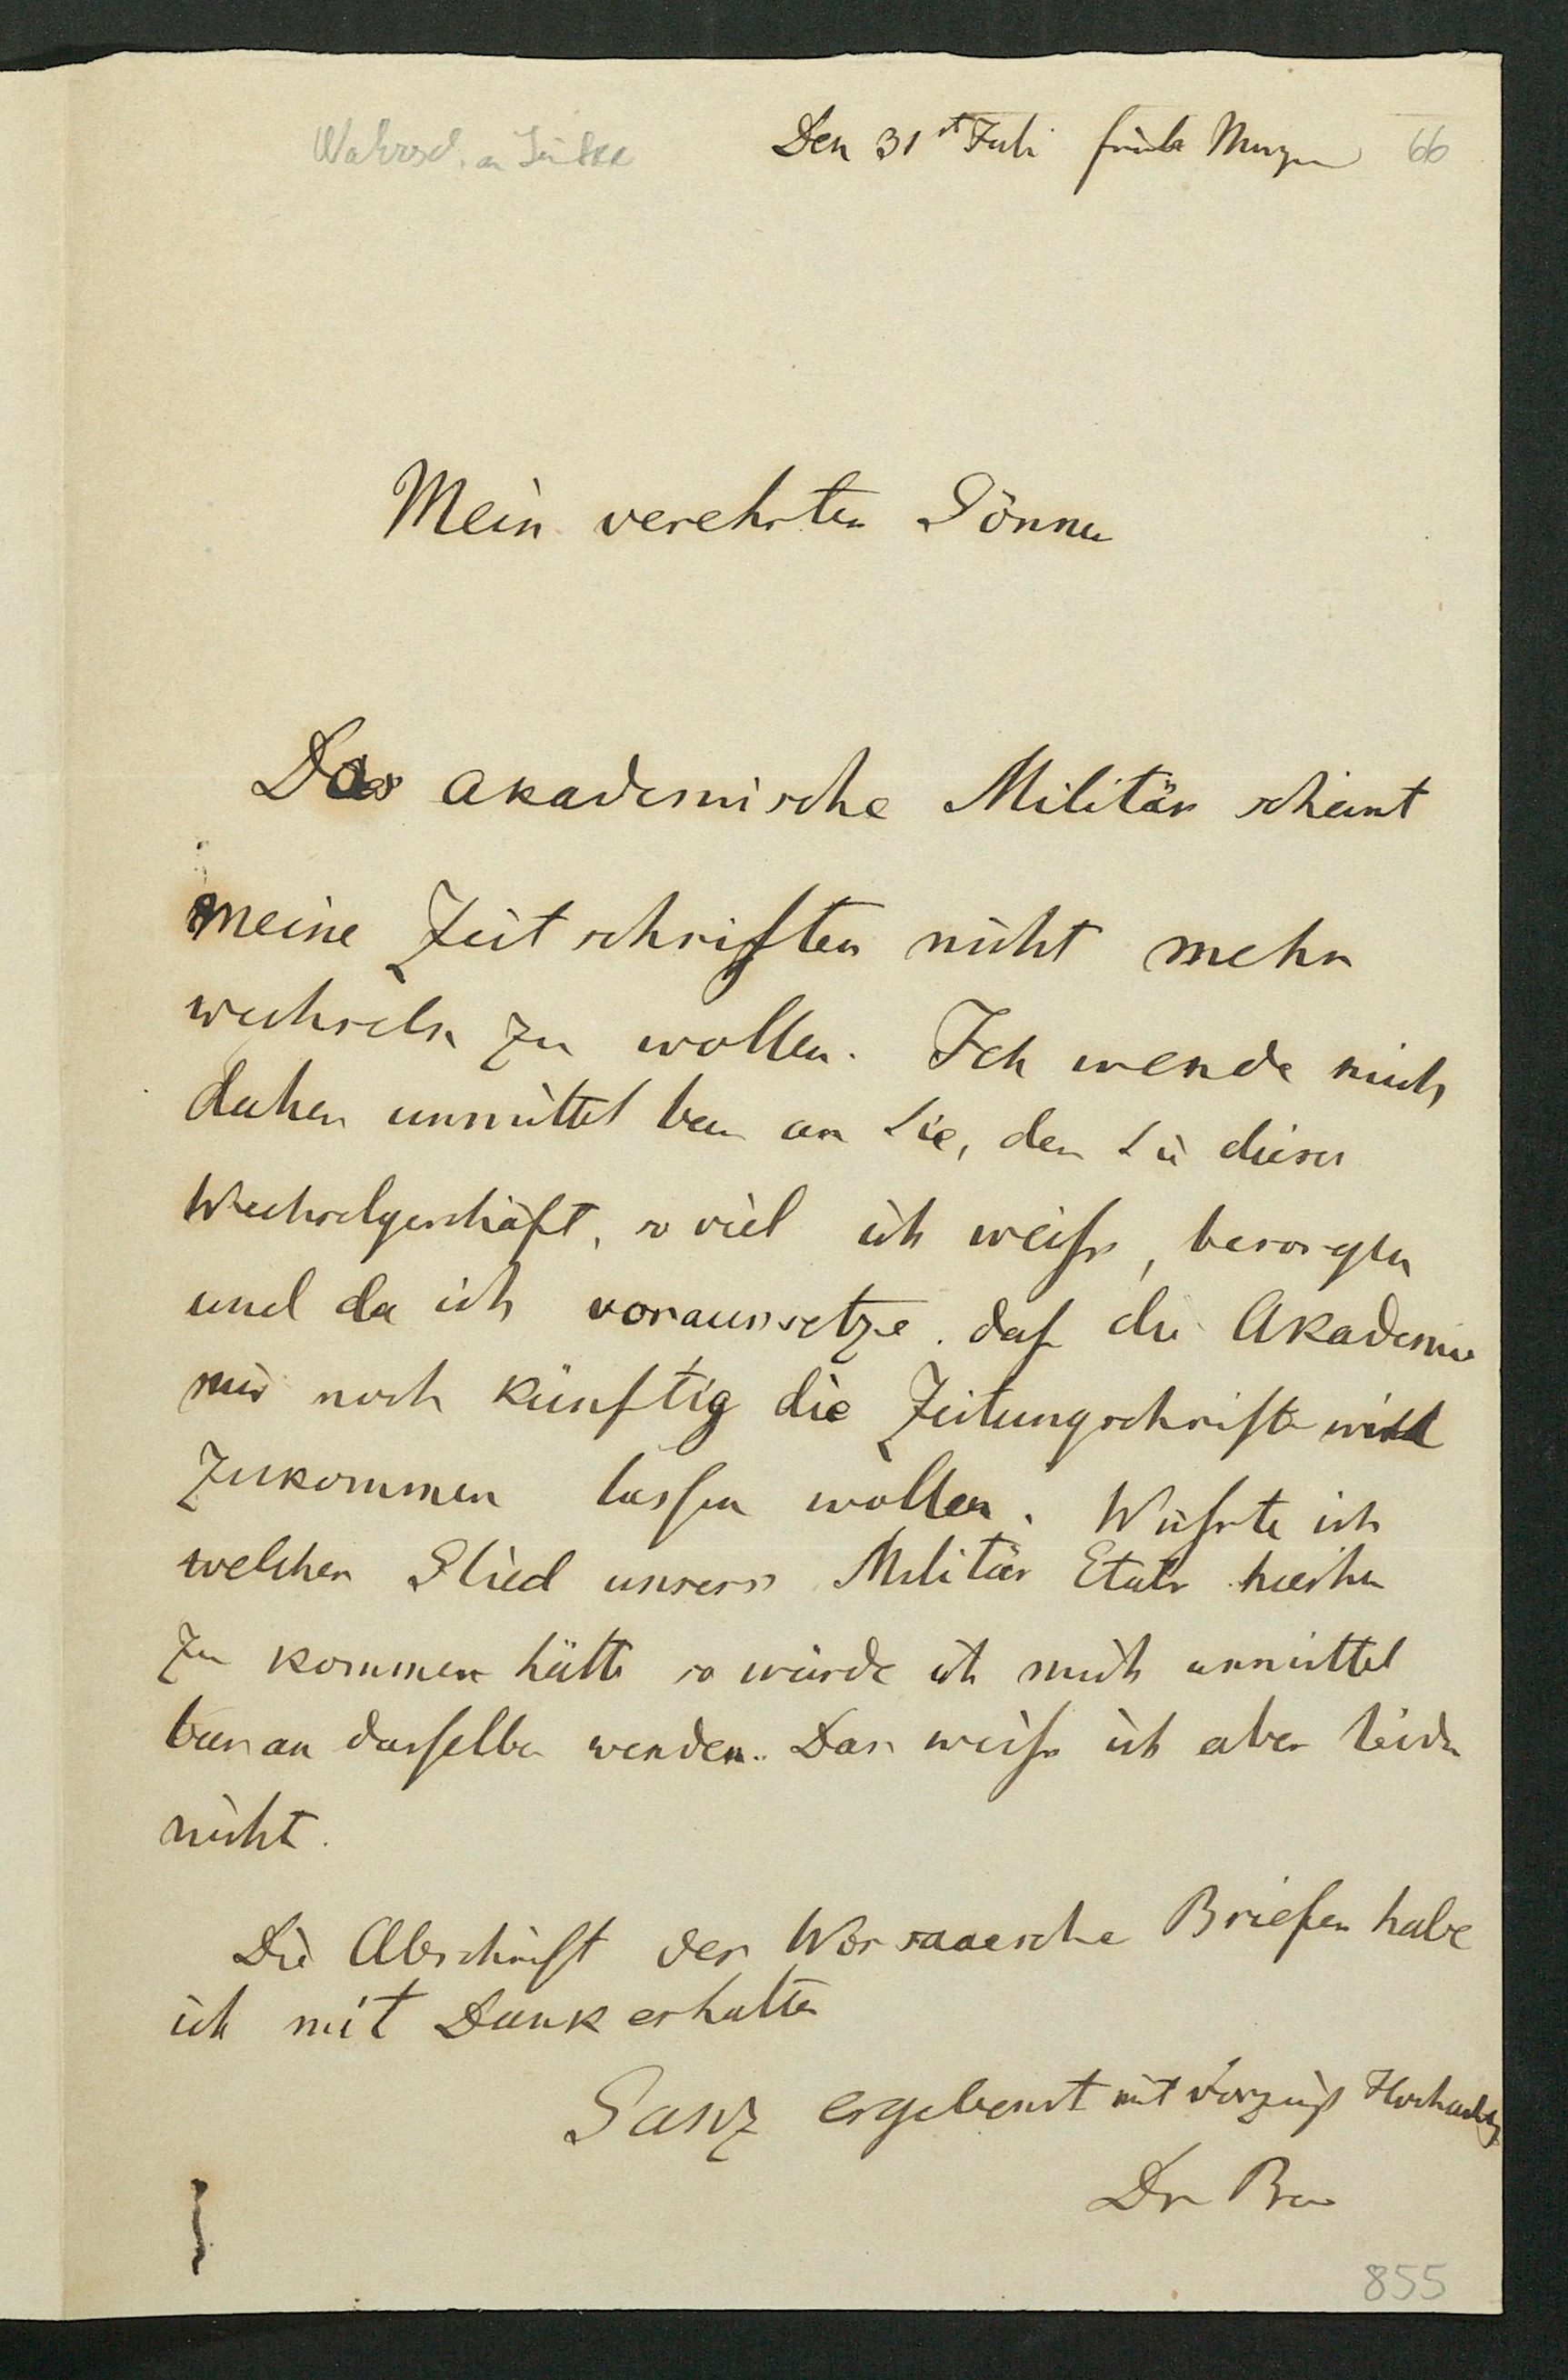 Den 31st Juli früh Morgen 66
Mein verehrter Gönner
Das akademische Militär scheint
meine Zeitschriften nicht mehr
wechseln zu wollen. Ich wende mich
daher unmittelbar an Sie, der Sie dieses
Wechselgeschäft, so viel ich weiss, besorgten
und da ich voraussetze. dass die Akademie
mir noch künftig die Zeitungschriften wird
zukommen lassen wollen. Wüsste ich
welches Glied unsers Militär Etats hierher
zu kommen hätte so würde ich mich unmittel
bar an dasselbe wenden. Das weiss ich aber leider
nicht.
Die Abschrift der Worsaaesche Briefen habe
ich mit Dank erhalten
Ganz ergebenst mit vorzügl Hochachtg
Dr Baer
855